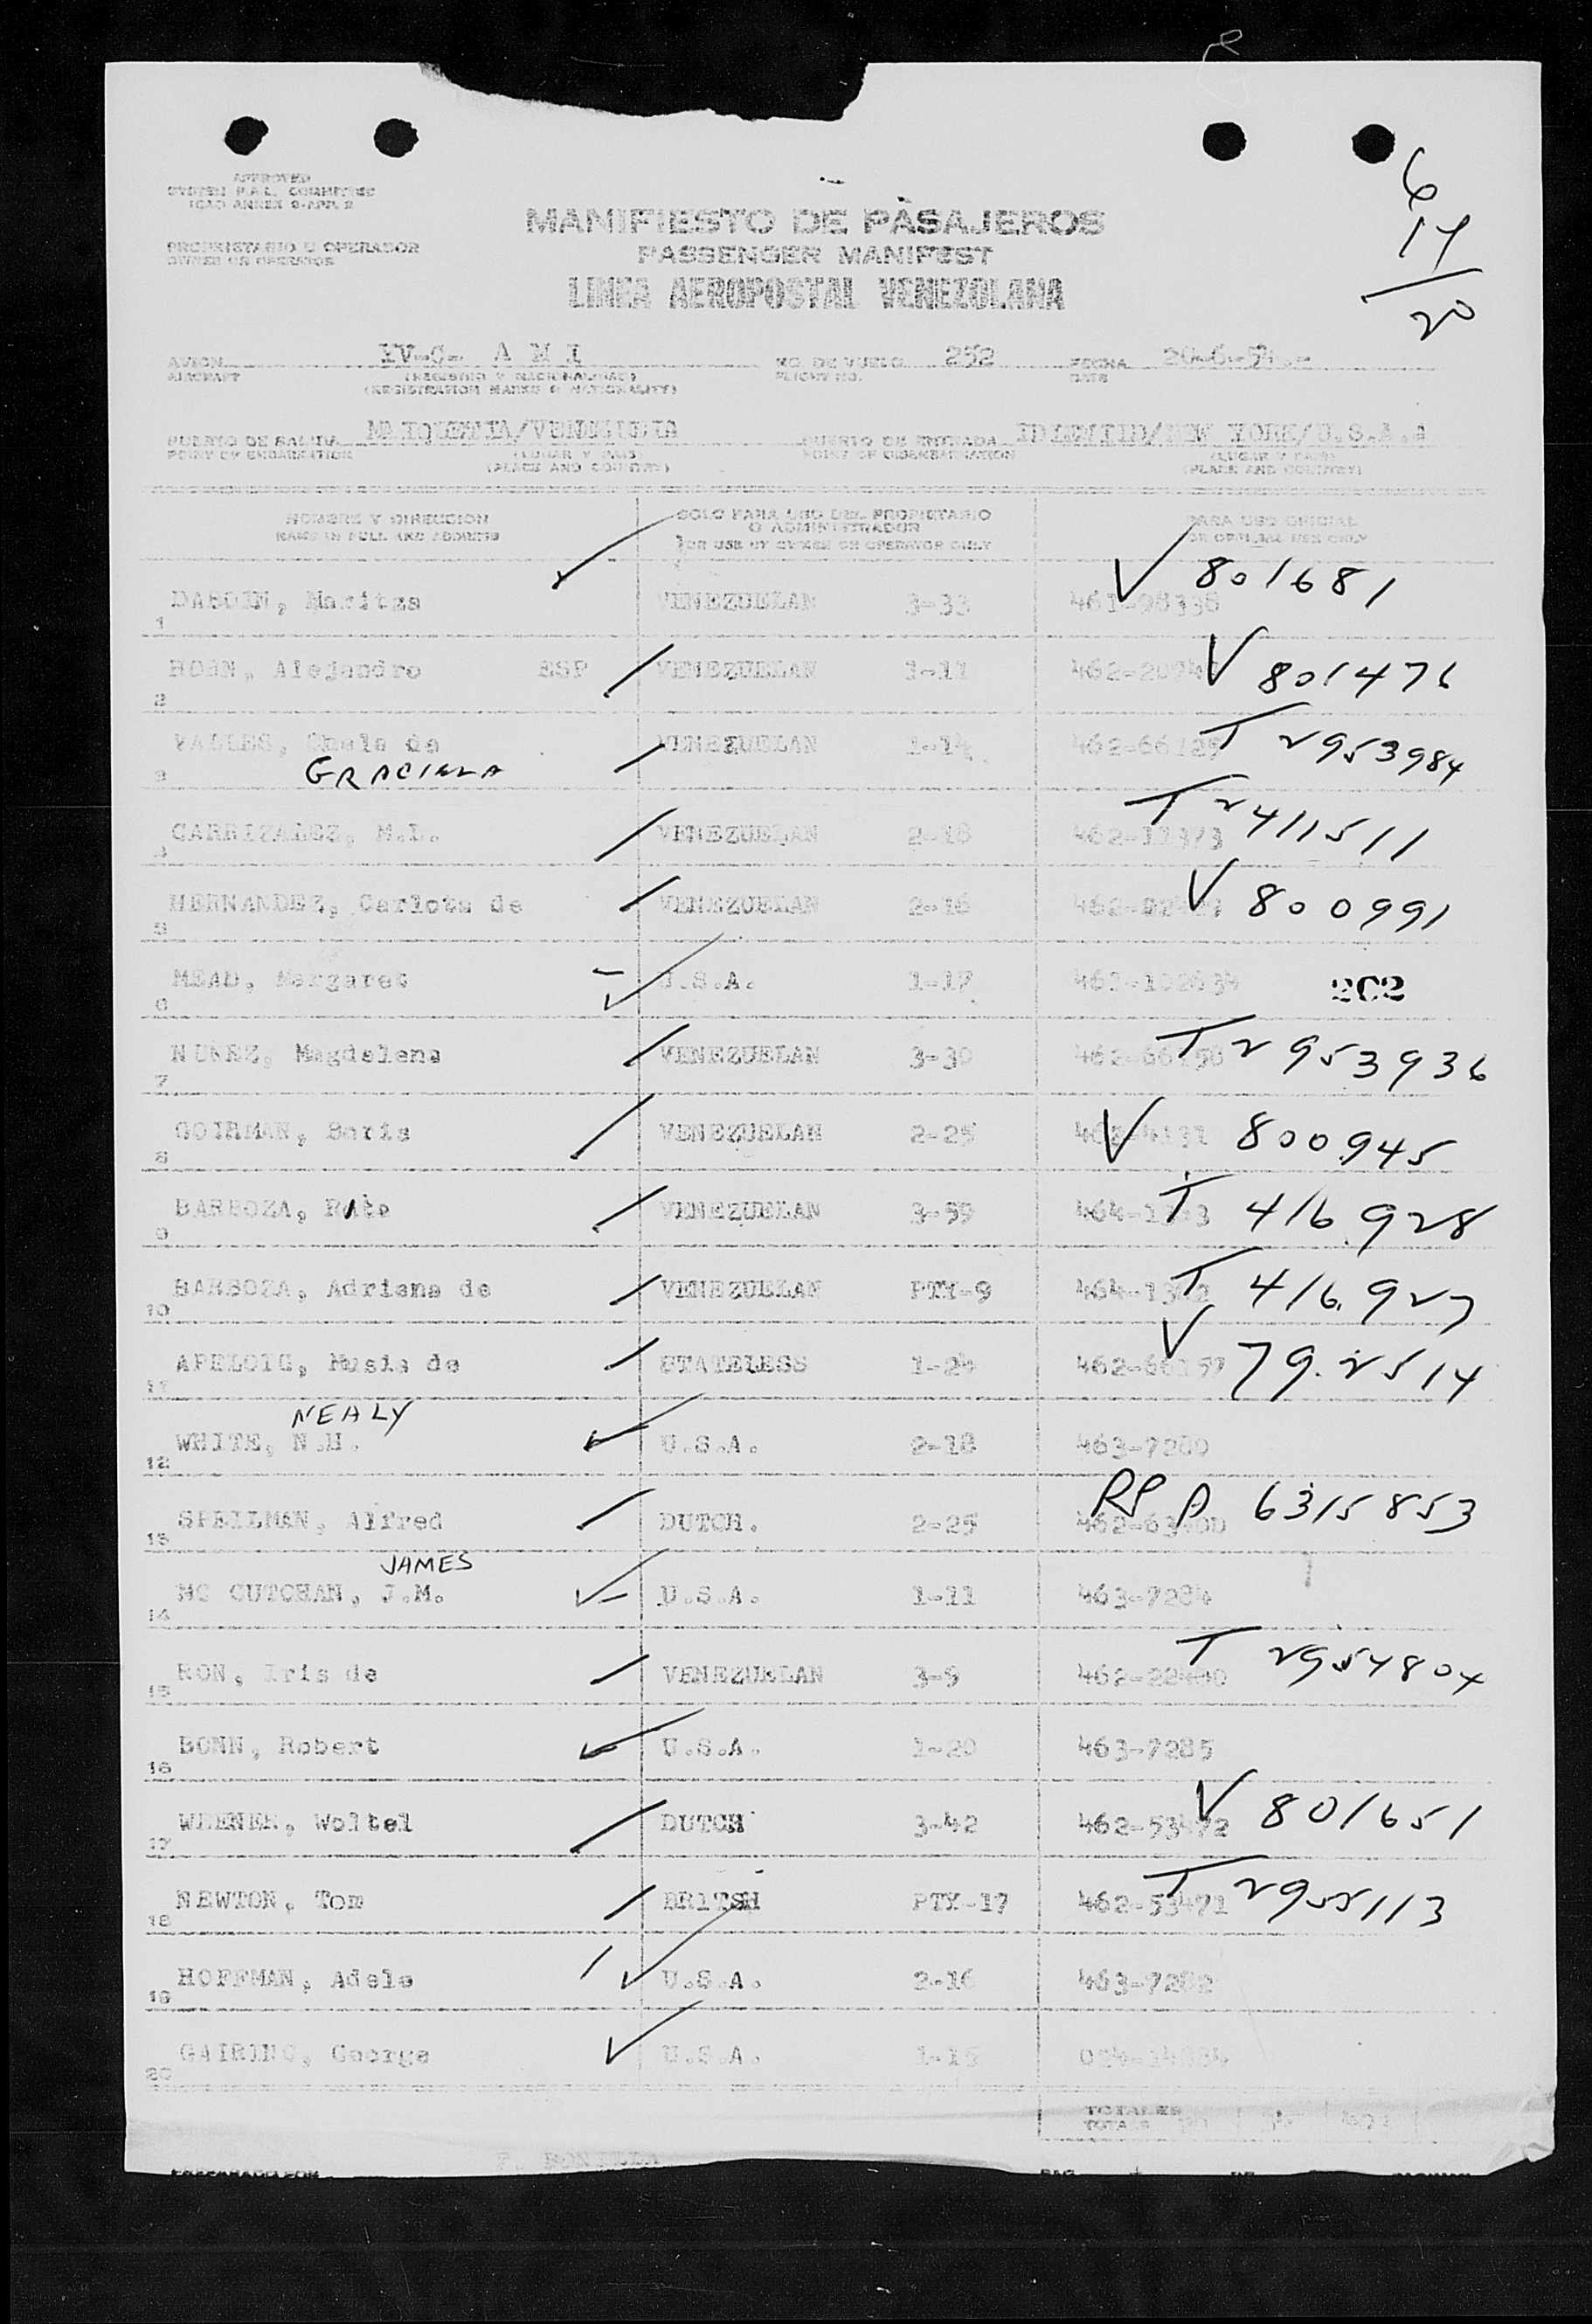 6
14
20
APPROVED
SYSTEM F.A.L. COMMITTEE
ICAO ANNEX 9-APP. 2
MANIFIESTO DE PASAJEROS
PROPRIETARIO U OPERADOR
OWNER OR OPERATOR
PASSENGER MANIFEST
LINEA AEROPOSTAL VENEZOLANA
AVION YV-C- A M I NO. DE VUELO 252 FECHA 20-6-54.-
AIRCRAFT (REGISTRO Y NACIONALIDAD) FLIGHT NO. DATE
(REGISTRATION MARKS & NATIONALITY)
PUERTO DE SALIDA MAIQUETIA/VENEZUELA PUERTO DE ENTRADA IDLEWILD/NEW YORK/U.S.A.
POINT OF EMBARKATION (LUGAR Y PAIS) POINT OF DISEMBARKATION (LUGAR Y PAIS)
(PLACE AND COUNTRY) (PLACE AND COUNTRY)
NOMBRE Y DIRECCION SOLO PARA USO DEL PROPIETARIO PARA USO OFICIAL
O ADMINISTRADOR
NAME IN FULL AND ADDRESS FOR USE BY OWNER OR OPERATOR ONLY OR OFFICIAL USE ONLY
V 801681
1 Maritza VENEZUELAN 3-33 461-98338
2 Alejandro ESP VENEZUELAN 1-11 V 801476
3 VALLES, de VENEZUELAN 1-14 T 2953984
GRACIELA
4 CARRIZALEZ, M.I. VENEZUELAN 2-18 T 2411511
5 HERNANDEZ, Carlota de VENEZUELAN 2-16 V 800991
6 MEAD, Margaret U.S.A. 1-17 202
7 NUNEZ, Magdalena VENEZUELAN 3-30 T 2953936
8 GOIHMAN, Boris VENEZUELAN 2-25 V 800945
9 BARBOZA, VENEZUELAN 3-59 T 416928
10 BARBOZA, Adriana de VENEZUELAN PTY-9 T 416927
11 APELOIG, de STATELESS 1-24 V 792514
NEALY
12 WHITE, N.H. U.S.A. 2-18 463-7280
13 SPEILMAN, Alfred DUTCH. 2-25 RP A 6315853
JAMES
14 MC CUTCHAN, J.M. U.S.A. 1-11 463-7284
15 RON, Iris de VENEZUELAN 3-5 T 2954804
16 BONN, Robert U.S.A. 1-20 463-7285
17 Woltel DUTCH 3-42 462-53472 V 801651
18 NEWTON, Tom BRITSH PTY-17 462-53471 T 2955113
19 HOFFMAN, Adele U.S.A. 2-16 463-7282
20 George U.S.A. 1-15
TOTALES
TOTALS